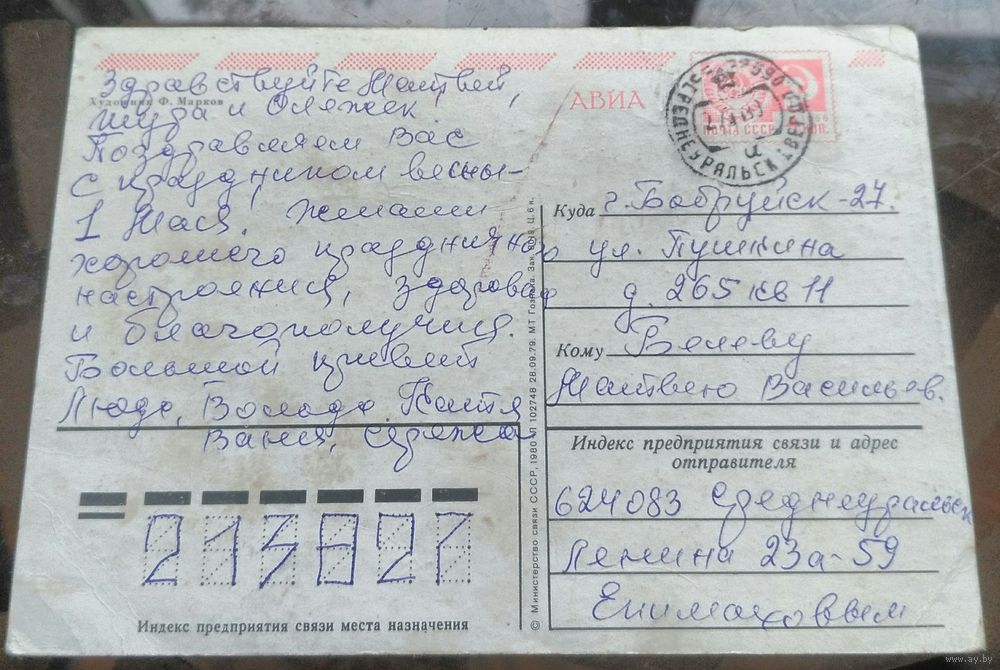 Здравствуйте Матвей,
Художник Ф. Марков
Шура и Олежек
Поздравляем Вас
с праздником весны-
1 Мая. Желаем
хорошего праздничного
настроения, здоровья
и благополучия.
Большой привет
Люда, Володя, Катя
Ваня, Сережа
АВИА
ПОЧТА СССР
СРЕДНЕУРАЛЬСК СВЕРДЛ.
Куда г. Бобруйск-27.
ул. Пушкина
д. 265 кв 11
Кому Белеву
Матвею Васильев.
Индекс предприятия связи и адрес
отправителя
624083 Среднеуральск
Ленина 23а-59
Епимаховым
213827
Индекс предприятия связи места назначения
© Министерство связи СССР, 1980 28.09.79. МТ Гознака. Зак. Ц. 6 к.
www.ay.by